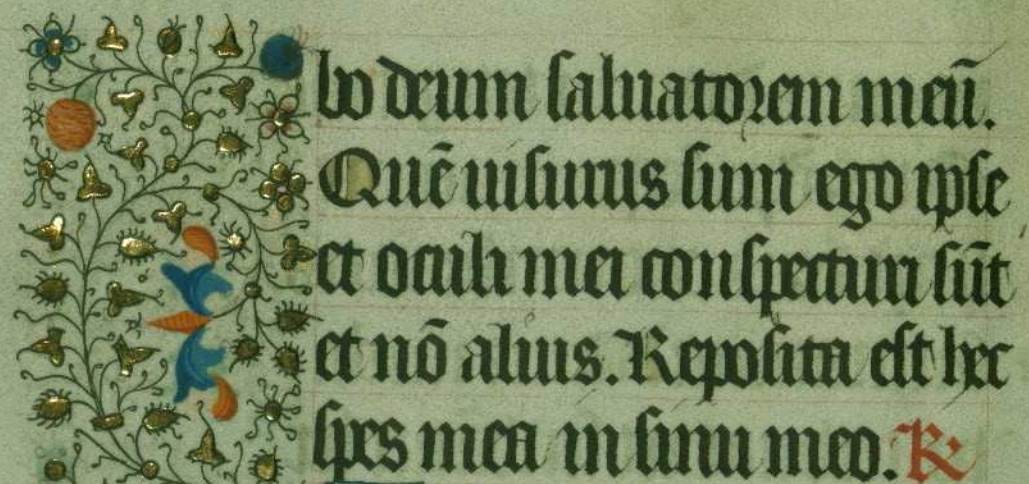 bo deum saluatorem meū.
Quē uisurus sum ego ipse
et oculi mei conspecturi sūt
et nō alius. Reposita est hec
spes mea in sinu meo. R